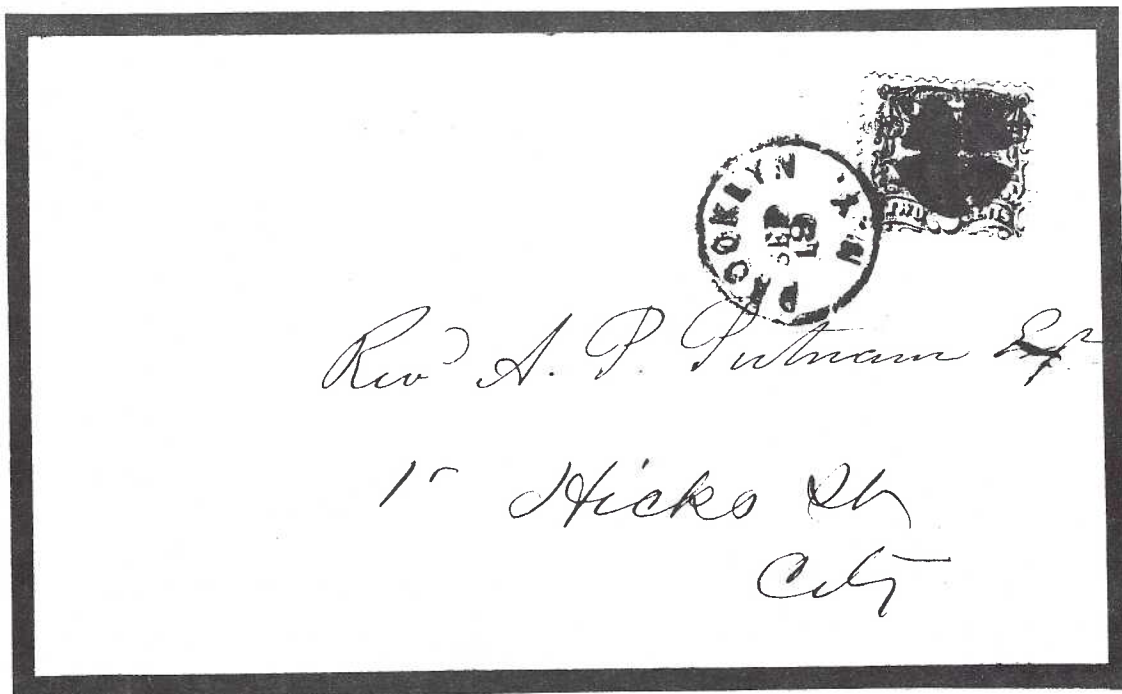 BROOKLYN N.Y.
SEP
19
TWO CENTS
Rev A. P. Putnam Esq.
Hicks St
City